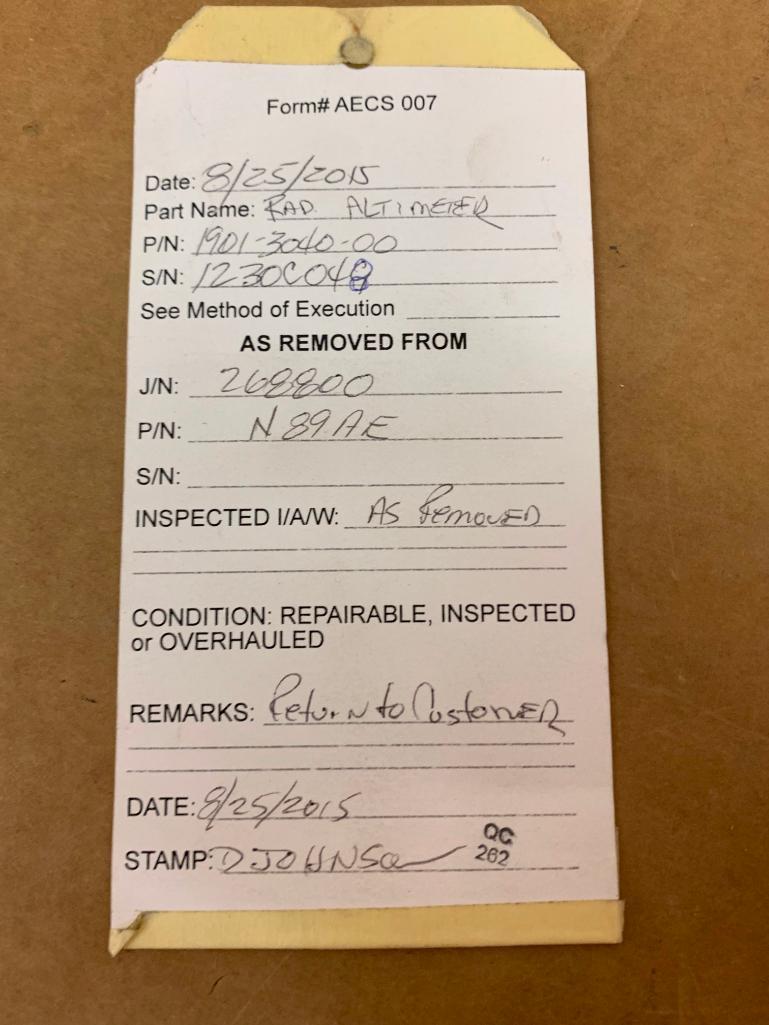 Form# AECS 007
Date: 8/25/2015
Part Name: RAD. ALTIMETER
P/N: 1901-3040-00
S/N: 1230C048
See Method of Execution
AS REMOVED FROM
J/N: 268800
P/N: N89AE
S/N:
INSPECTED I/A/W: AS Removed
CONDITION: REPAIRABLE, INSPECTED
or OVERHAULED
REMARKS: Return to Customer
DATE: 8/25/2015
QC
STAMP: D JOHNSON 262